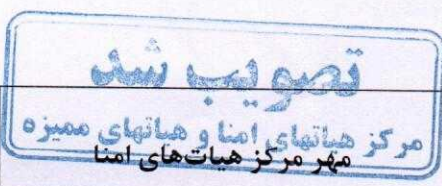 تصویب شد
مرکز هیاتهای امنا و هیاتهای ممیزه
مهر مرکز هیات‌های امنا